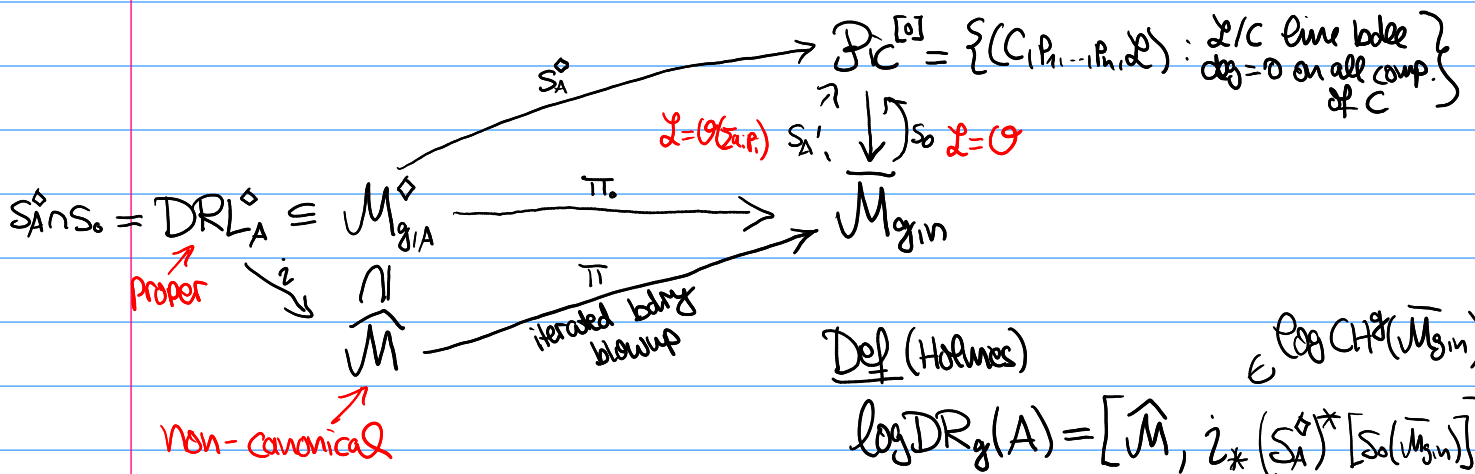 Pic^[0] = {(C, p_1, ..., p_n, ℒ) : ℒ/C line bdle
deg=0 on all comp.
of C}
S_A^◇
ℒ=O(Σa_i p_i) S_A ↓ S_0 ℒ=O
S_A^◇ ∩ S_0 = DRL_A^◇ ⊆ M_{g,A}^◇ π_0 M̄_{g,n}
proper i ∩| π
iterated bdry
blowup
M̂
non-canonical
Def (Holmes) ∈ log CH^g(M̄_{g,n})
logDR_g(A) = [M̂, i_* (S_A^◇)^* [S_0(M̄_{g,n})]]